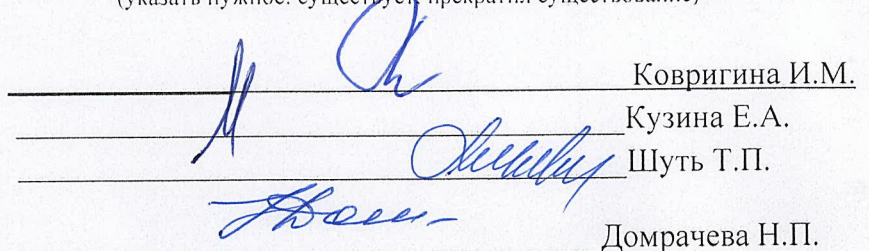 (указать нужное: существует, прекратил существование)
Ковригина И.М.
Кузина Е.А.
Шуть Т.П.
Домрачева Н.П.